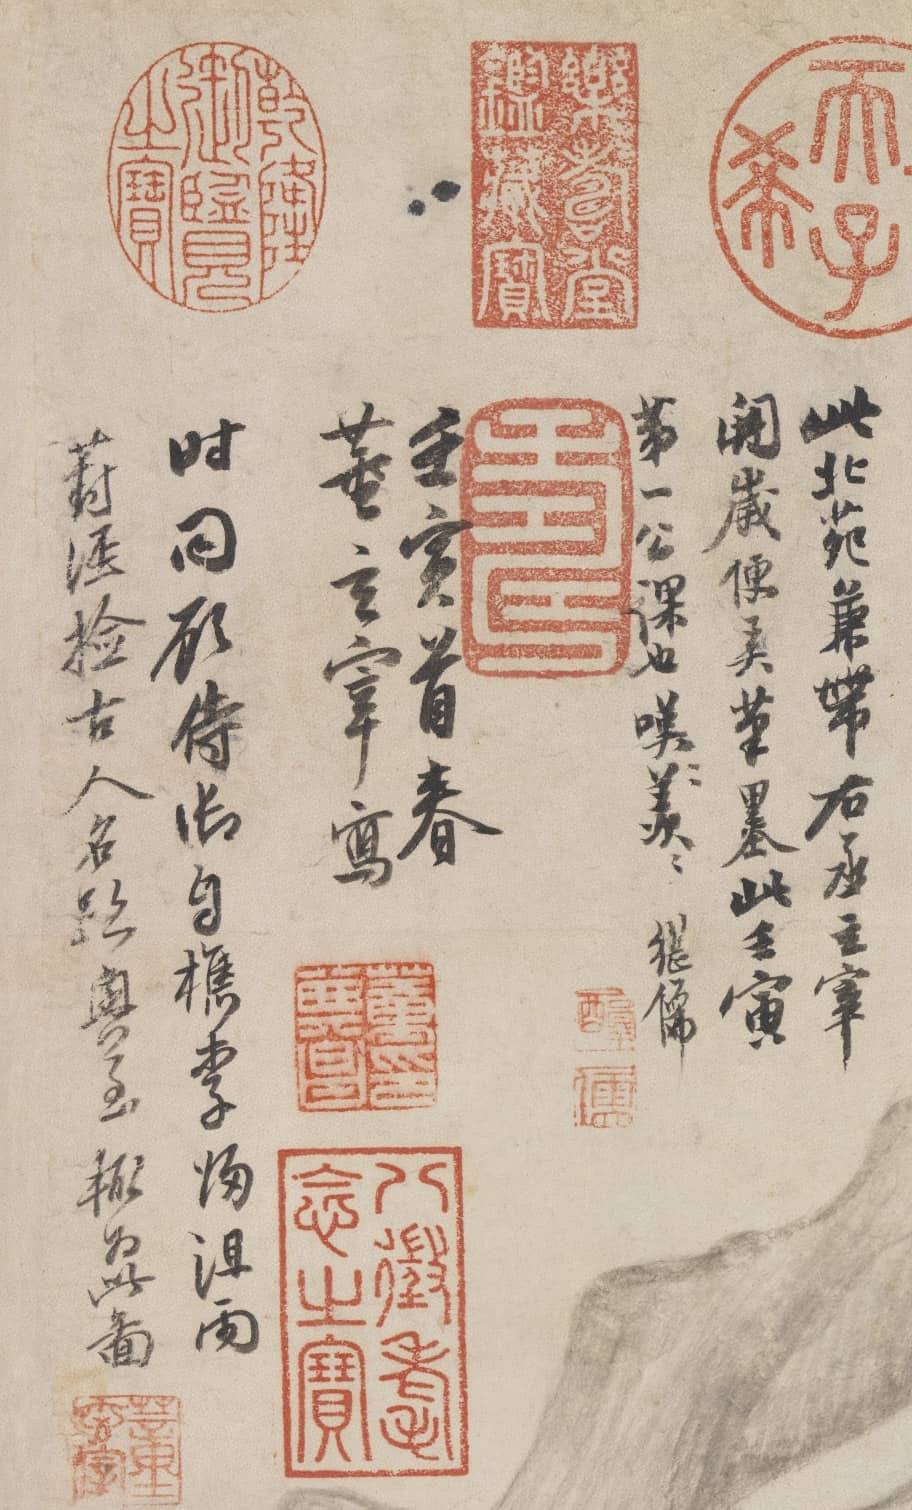 天子
希
樂壽堂
鑑藏寶
乾隆
御覽
之寶
此北苑兼帶右丞玄宰
開歲便弄筆墨此壬寅
第一公課也嘆〻羨〻 繼儒
壬寅首春
董玄宰寫
八徵耄
念之寶
时同顧侍御自檇李歸阻雨
葑涇檢古人名跡興至輒為此圖